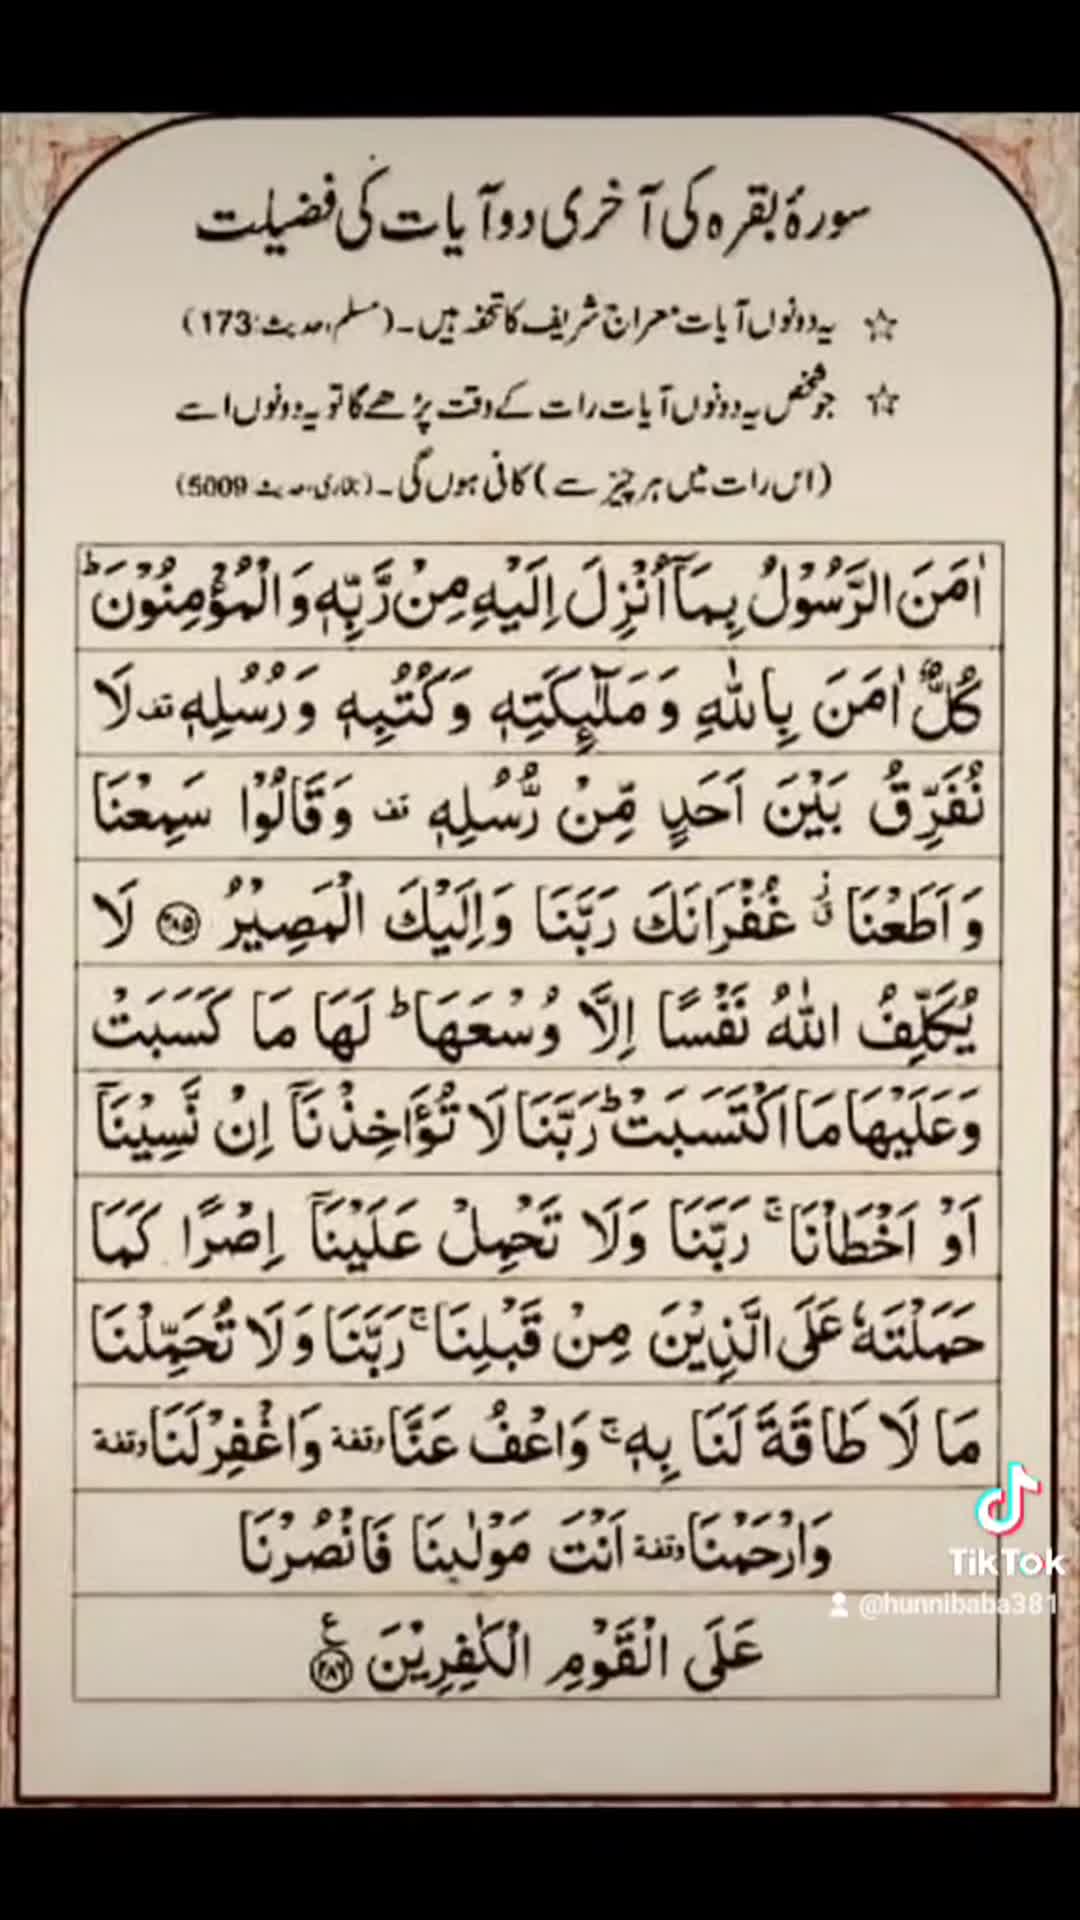 سورۂ بقرہ کی آخری دو آیات کی فضیلت
☆ یہ دونوں آیات معراج شریف کا تحفہ ہیں۔ (مسلم، حدیث: 173)
☆ جو شخص یہ دونوں آیات رات کے وقت پڑھے گا تو یہ دونوں اسے
(اس رات میں ہر چیز سے) کافی ہوں گی۔ (بخاری، حدیث 5009)
اٰمَنَ الرَّسُوْلُ بِمَاۤ اُنْزِلَ اِلَيْهِ مِنْ رَّبِّهٖ وَ الْمُؤْمِنُوْنَ ؕ
كُلٌّ اٰمَنَ بِاللّٰهِ وَ مَلٰٓئِكَتِهٖ وَ كُتُبِهٖ وَ رُسُلِهٖ قف لَا
نُفَرِّقُ بَيْنَ اَحَدٍ مِّنْ رُّسُلِهٖ قف وَ قَالُوْا سَمِعْنَا
وَ اَطَعْنَا ز غُفْرَانَكَ رَبَّنَا وَ اِلَيْكَ الْمَصِيْرُ ﴿۲۸۵﴾ لَا
يُكَلِّفُ اللّٰهُ نَفْسًا اِلَّا وُسْعَهَا ؕ لَهَا مَا كَسَبَتْ
وَ عَلَيْهَا مَا اكْتَسَبَتْ ؕ رَبَّنَا لَا تُؤَاخِذْنَاۤ اِنْ نَّسِيْنَاۤ
اَوْ اَخْطَاْنَا ۚ رَبَّنَا وَ لَا تَحْمِلْ عَلَيْنَاۤ اِصْرًا كَمَا
حَمَلْتَهٗ عَلَى الَّذِيْنَ مِنْ قَبْلِنَا ۚ رَبَّنَا وَ لَا تُحَمِّلْنَا
مَا لَا طَاقَةَ لَنَا بِهٖ ۚ وَ اعْفُ عَنَّا وقفة وَ اغْفِرْ لَنَا وقفة
وَ ارْحَمْنَا وقفة اَنْتَ مَوْلٰىنَا فَانْصُرْنَا
عَلَى الْقَوْمِ الْكٰفِرِيْنَ ﴿۲۸۶﴾ ع
TikTok
@hunnibaba381